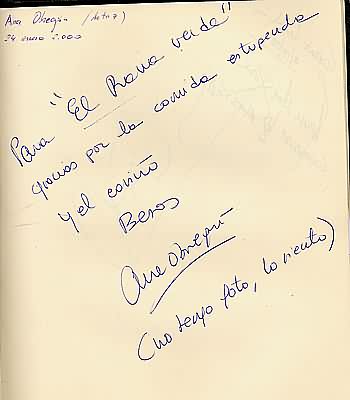 Ana Obregón (actriz)
24 enero 2.000
Para "El Rana verde"
gracias por la comida estupenda
y el cariño
Besos
Ana Obregón
(no tengo foto, lo siento)